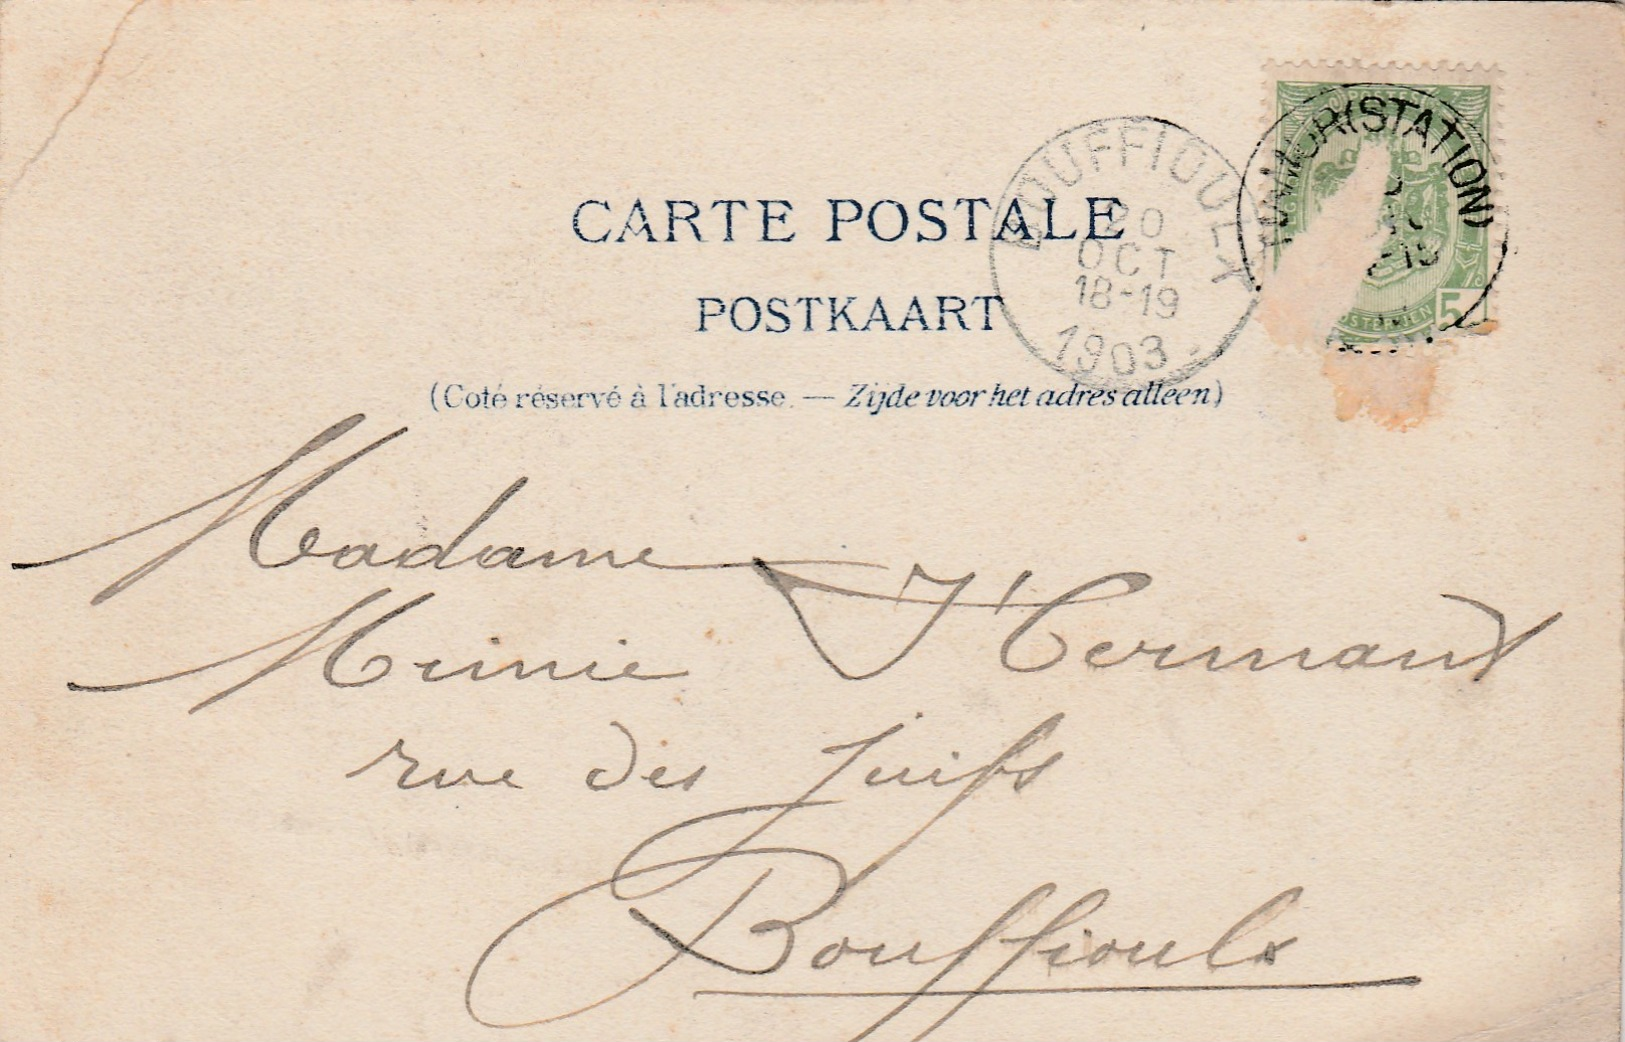 CARTE POSTALE
POSTKAART
(Coté réservé à l'adresse. — Zijde voor het adres alleen)
BOUFFIOULX
20
OCT
18-19
1903
POSTES
(STATION)
5
Madame
Minie Hermant
rue des Juifs
Bouffioulx